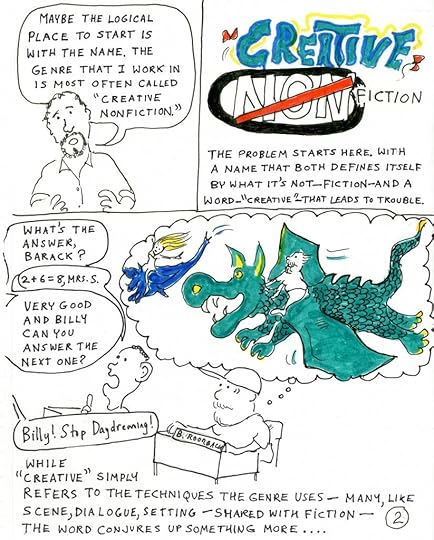 MAYBE THE LOGICAL
PLACE TO START IS
WITH THE NAME. THE
GENRE THAT I WORK IN
IS MOST OFTEN CALLED
"CREATIVE
NONFICTION."
"CREATIVE"
NON FICTION
THE PROBLEM STARTS HERE. WITH
A NAME THAT BOTH DEFINES ITSELF
BY WHAT IT'S NOT—FICTION—AND A
WORD—"CREATIVE"—THAT LEADS TO TROUBLE.
WHAT'S THE
ANSWER,
BARACK?
2+6=8, MRS. S.
VERY GOOD
AND BILLY
CAN YOU
ANSWER THE
NEXT ONE?
Billy! Stop Daydreaming!
B. ROORBACH
WHILE
"CREATIVE" SIMPLY
REFERS TO THE TECHNIQUES THE GENRE USES — MANY, LIKE
SCENE, DIALOGUE, SETTING — SHARED WITH FICTION —
THE WORD CONJURES UP SOMETHING MORE ....
2